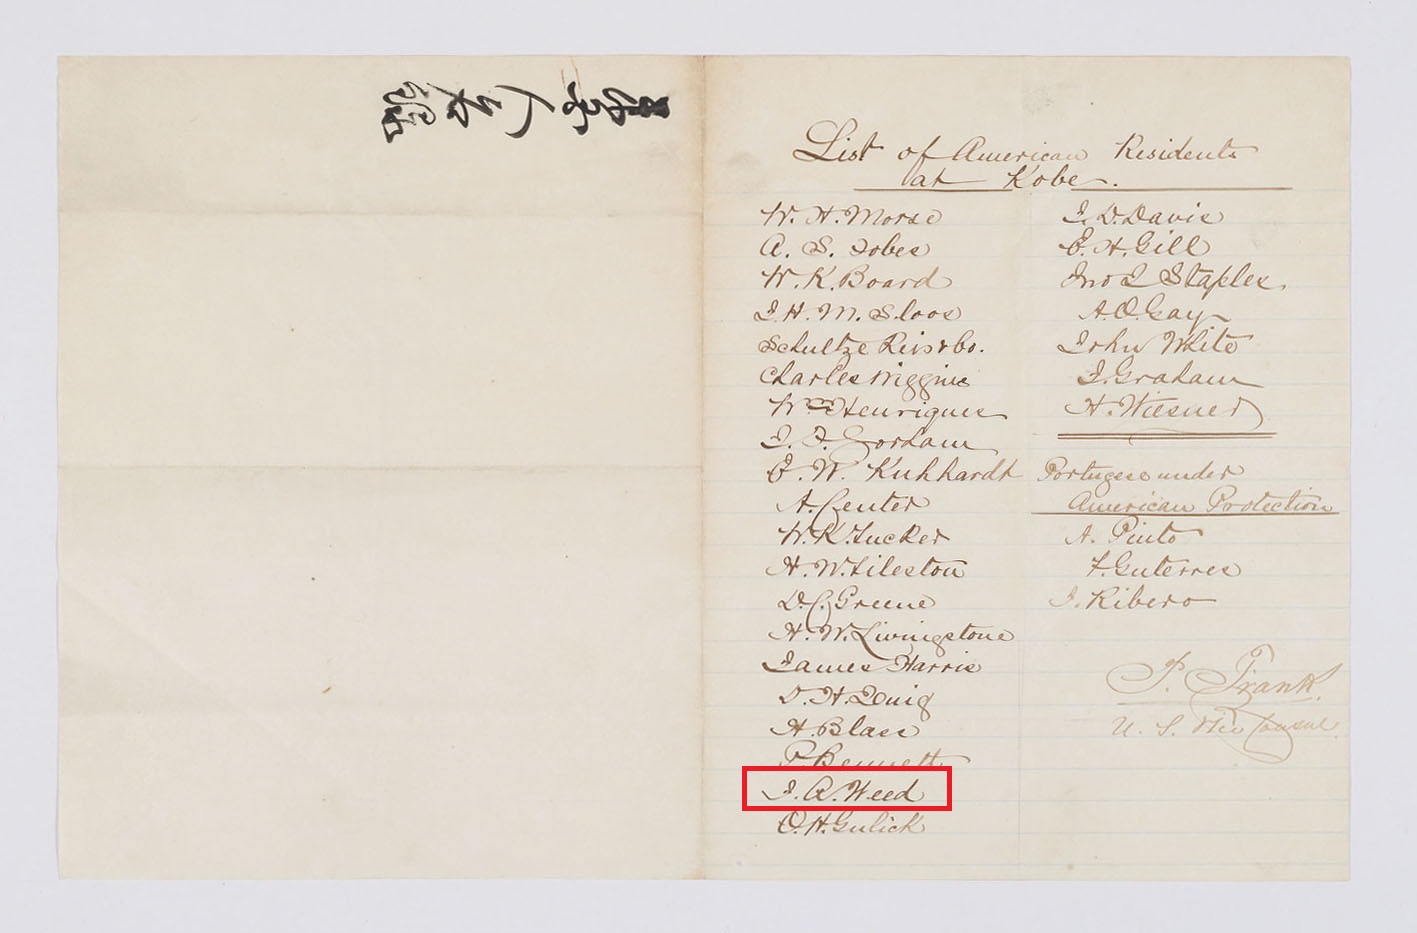 List of American Residents
at Kobe.
W. H. Morse
A. S. Fobes
W. K. Board
J. H. M. Sloos
Schultze Reis & Co.
Charles Wiggins
Wm Henriques
J. F. Gordam
E. W. Kuhhardt
A. Center
W. K. Tucker
H. W. Tileston
D. C. Greene
H. W. Livingstone
James Harris
D. H. Quig
H. Blass
P. Bennett
J. A. Weed
O. H. Gulick
J. D. Davis
E. H. Gill
Jno S Staples.
A. O. Gay
John White
J. Graham
H. Wiesner
Portugese under
American Protection
A. Pinto
F. Guterres
J. Ribero
P. Frank.
U. S. Vice Consul.